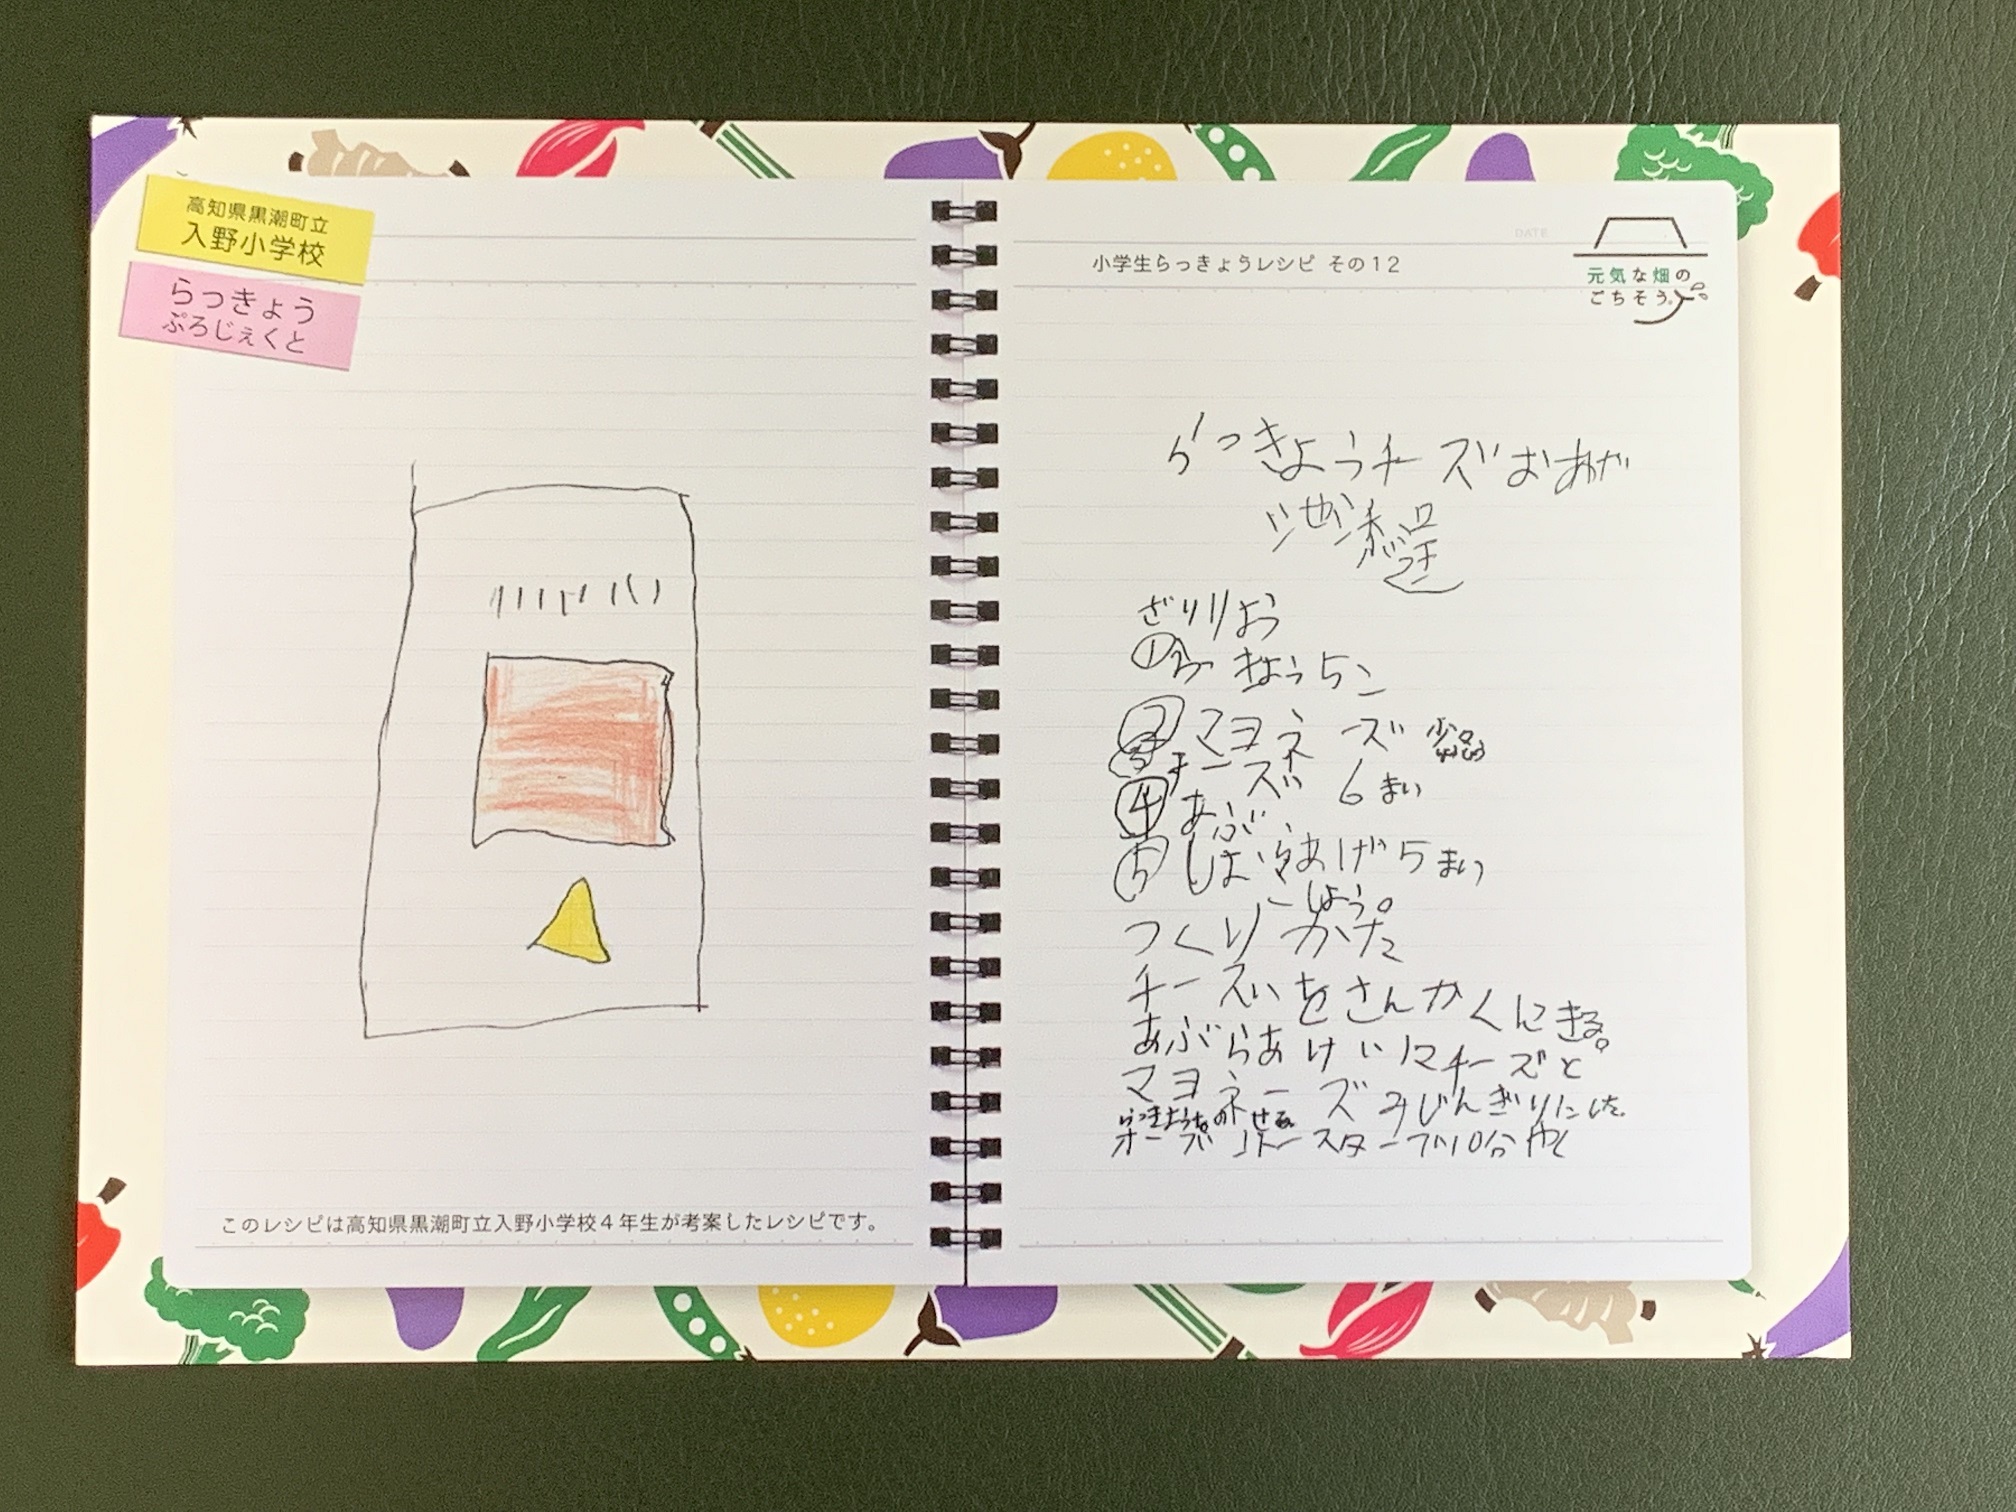 高知県黒潮町立
入野小学校
らっきょう
ぷろじぇくと
このレシピは高知県黒潮町立入野小学校4年生が考案したレシピです。
DATE
小学生らっきょうレシピ その12
元気な畑の
ごちそう。
らっきょうチーズおあげ
ざいりょう
①らっきょう5こ
②マヨネーズ 少
③チーズ 6まい
④あぶ
⑤しお らあげ5まい
こしょう。
つくりかた
チーズをさんかくにきる。
あぶらあげにチーズと
マヨネーズみじんぎりにした
らっきょうをのせる。
オーブントースターで10分やく